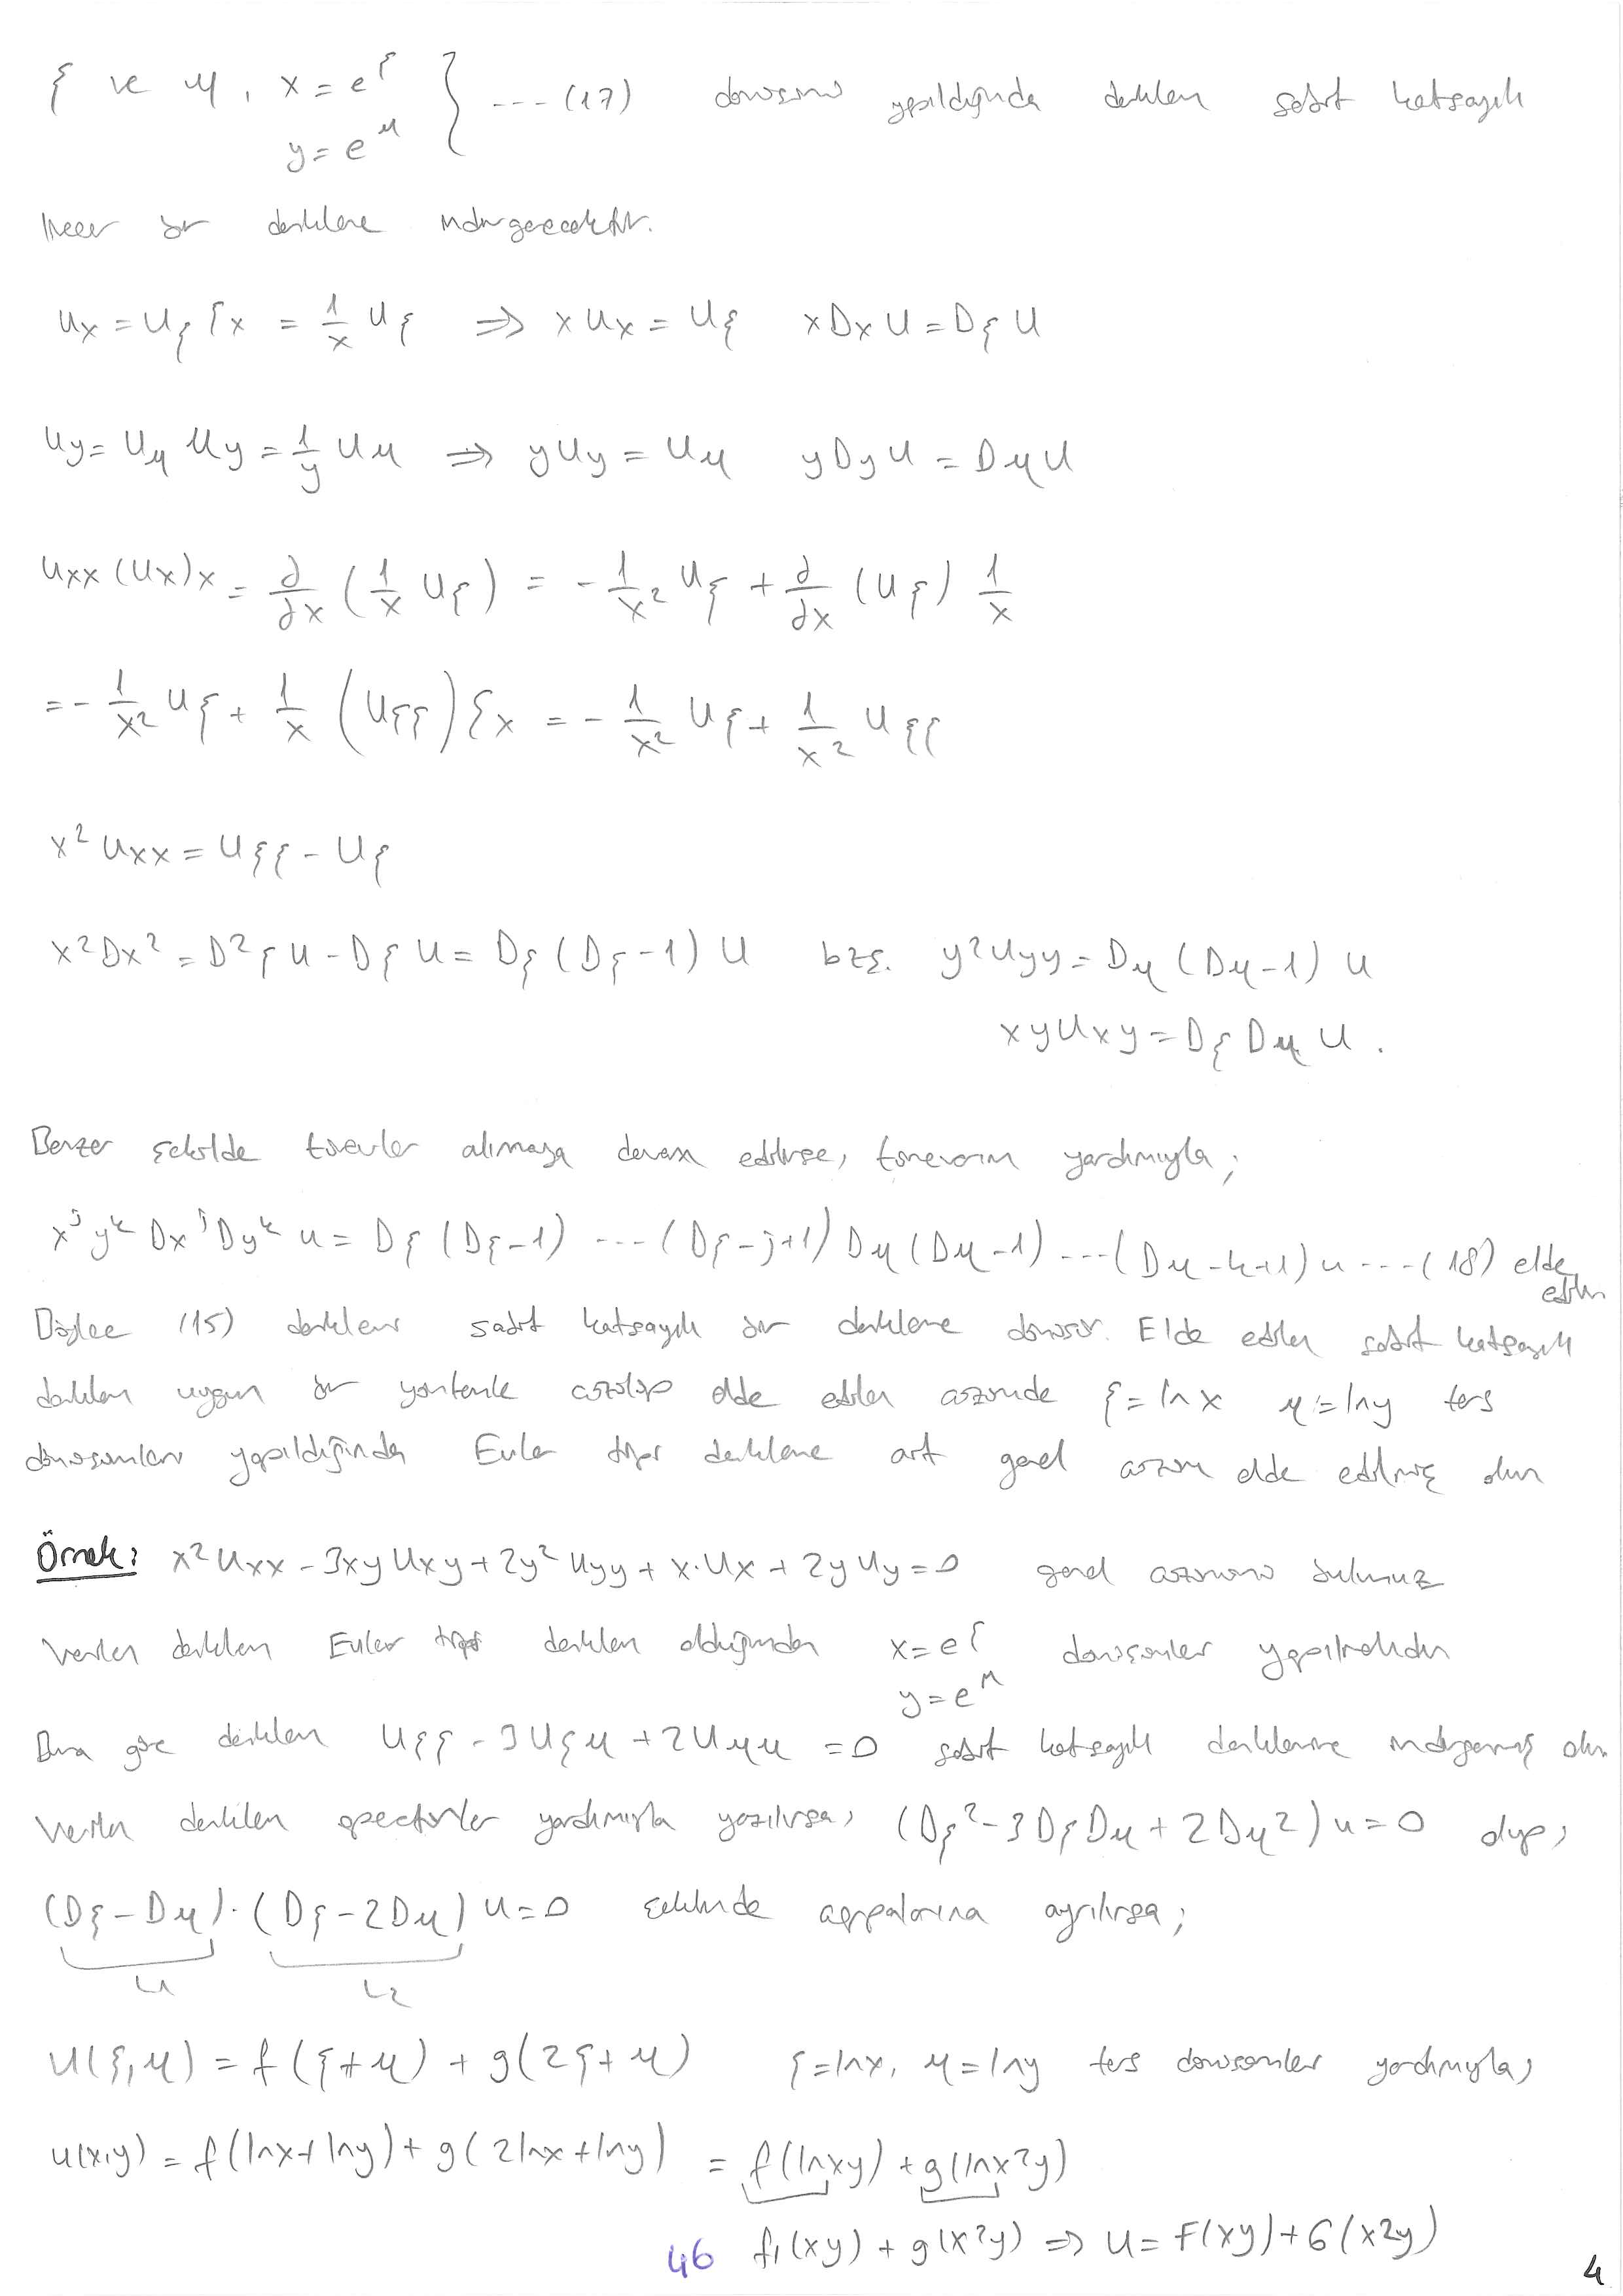 ξ ve η, x = e^ξ } --- (17) dönüşümü yapıldığında denklem sabit katsayılı
y = e^η
lineer bir denkleme indirgenecektir.
ux = uξ ξx = 1/x uξ ⇒ x ux = uξ x Dx u = Dξ u
uy = uη ηy = 1/y uη ⇒ y uy = uη y Dy u = Dη u
uxx (ux)x = ∂/∂x (1/x uξ) = - 1/x² uξ + ∂/∂x (uξ) 1/x
= - 1/x² uξ + 1/x (uξξ) ξx = - 1/x² uξ + 1/x² uξξ
x² uxx = uξξ - uξ
x² Dx² = D²ξ u - Dξ u = Dξ (Dξ - 1) u bzş. y² uyy = Dη (Dη - 1) u
xy uxy = Dξ Dη u .
Benzer şekilde türevler alınmaya devam edilirse, tümevarım yardımıyla ;
x^j y^k Dx^j Dy^k u = Dξ (Dξ - 1) --- (Dξ - j+1) Dη (Dη - 1) --- (Dη - k+1) u --- (18) elde
edilir
Böylece (15) denklemi sabit katsayılı bir denkleme dönüşür. Elde edilen sabit katsayılı
denklem uygun bir yöntemle çözülüp elde edilen çözümde ξ = lnx η = lny ters
dönüşümleri yapıldığında Euler tipi denkleme ait genel çözüm elde edilmiş olur
Örnek: x² uxx - 3xy uxy + 2y² uyy + x.ux + 2y uy = 0 genel çözümünü bulunuz
Verilen denklem Euler tipi denklem olduğundan x = e^ξ dönüşümler yapılmalıdır
y = e^η
Buna göre denklem uξξ - 3uξη + 2uηη = 0 sabit katsayılı denklemine indirgenmiş olur.
Verilen denklem operatörler yardımıyla yazılırsa, (Dξ² - 3 Dξ Dη + 2 Dη²) u = 0 olup,
(Dξ - Dη) . (Dξ - 2Dη) u = 0 şeklinde çarpanlarına ayrılırsa ;
L1 L2
u(ξ,η) = f(ξ+η) + g(2ξ+η) ξ = lnx, η = lny ters dönüşümler yardımıyla,
u(x,y) = f(lnx + lny) + g(2lnx + lny) = f(lnxy) + g(lnx²y)
f1(xy) + g(x²y) ⇒ u = F(xy) + G(x²y)
46
4